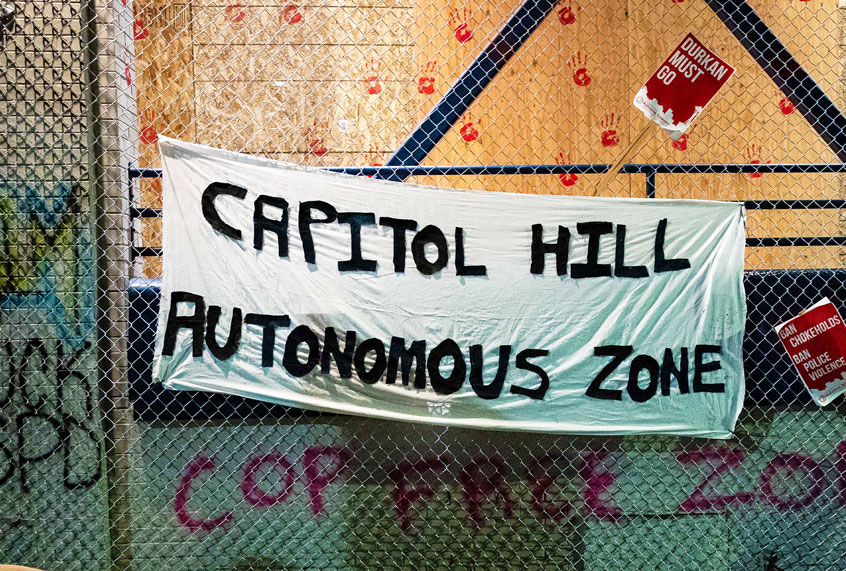 DURKAN
MUST
GO
CAPITOL HILL
AUTONOMOUS ZONE
BAN
CHOKEHOLDS
BAN
POLICE
VIOLENCE
SPD
COP FREE ZO